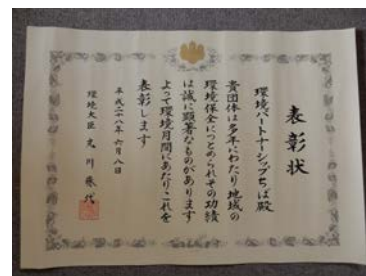 表彰状
環境パートナーシップちば殿
貴団体は多年にわたり地域の
環境保全につとめられその功績
は誠に顕著なものがあります
よって環境月間にあたりこれを
表彰します
平成二十八年六月八日
環境大臣 丸川珠代